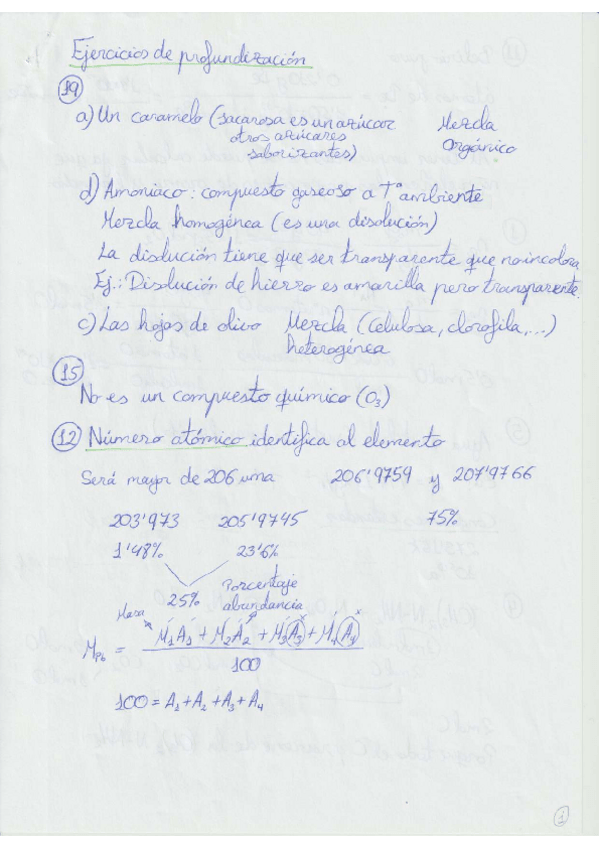 Ejercicios de profundización
19
a) Un caramelo (sacarosa es un azúcar Mezcla
otros azúcares Orgánico
saborizantes)
d) Amoniaco: compuesto gaseoso a Tª ambiente
Mezcla homogénea (es una disolución)
La disolución tiene que ser transparente que no incolora
Ej.: Disolución de hierro es amarilla pero transparente.
c) Las hojas de olivo Mezcla (celulosa, clorofila,...)
heterogénea
15
No es un compuesto químico (O3)
12 Número atómico identifica al elemento
Será mayor de 206 uma 206'9759 y 207'9766
203'973 205'9745 75%
1'48% 23'6%
25% Porcentaje
abundancia
Masa
M_Pb = (M1A1 + M2A2 + M3A3 + M4A4) / 100
100 = A1 + A2 + A3 + A4
1